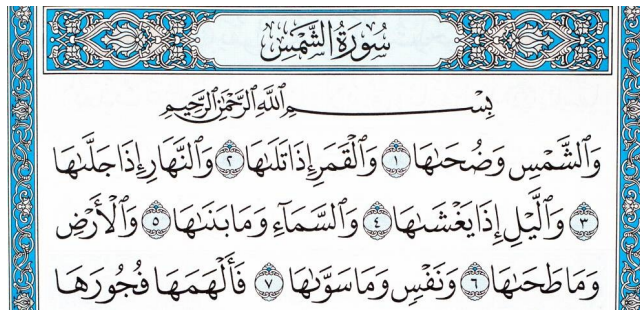 سُورَةُ الشَّمْسِ
بِسْمِ اللَّهِ الرَّحْمَٰنِ الرَّحِيمِ
وَالشَّمْسِ وَضُحَىٰهَا ١ وَالْقَمَرِ إِذَا تَلَىٰهَا ٢ وَالنَّهَارِ إِذَا جَلَّىٰهَا
٣ وَالَّيْلِ إِذَا يَغْشَىٰهَا ٤ وَالسَّمَآءِ وَمَا بَنَىٰهَا ٥ وَالْأَرْضِ
وَمَا طَحَىٰهَا ٦ وَنَفْسٍ وَمَا سَوَّىٰهَا ٧ فَأَلْهَمَهَا فُجُورَهَا